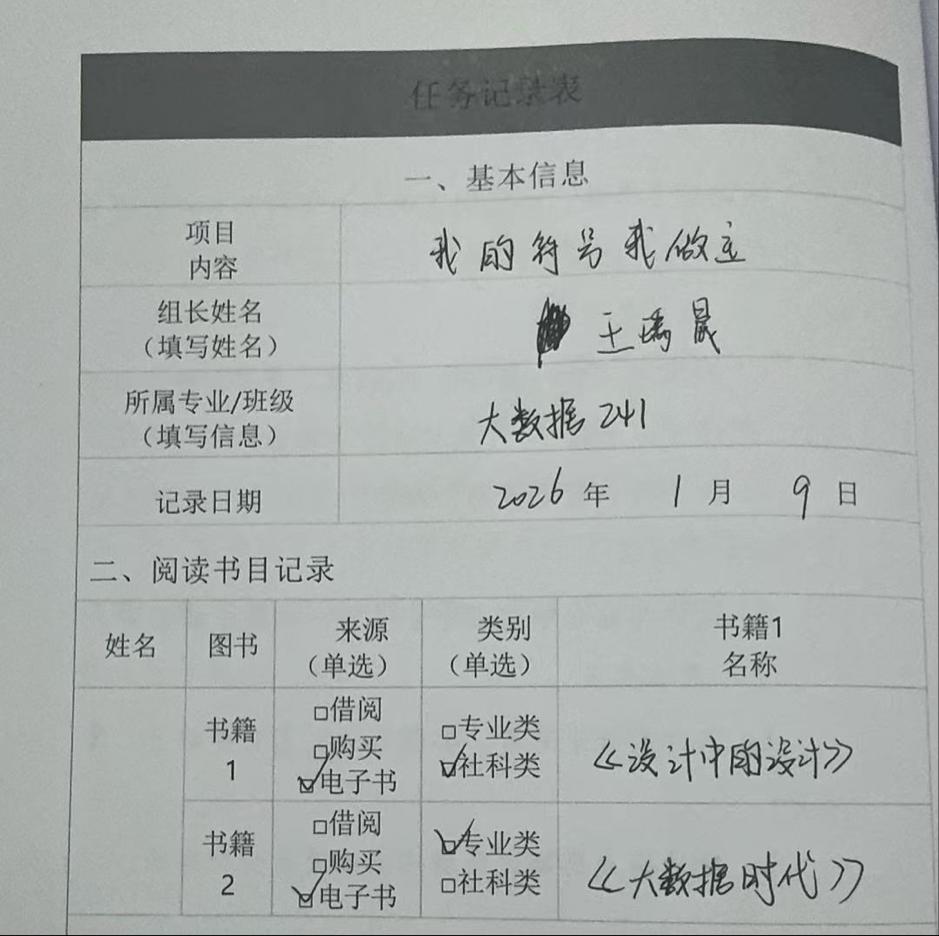 任务记录表
一、基本信息
项目
内容
我的符号我做主
组长姓名
(填写姓名)
王 晟
所属专业/班级
(填写信息)
大数据241
记录日期
2026年 1月 9日
二、阅读书目记录
姓名
图书
来源
(单选)
类别
(单选)
书籍1
名称
书籍
1
□借阅
□购买
☑电子书
□专业类
☑社科类
《设计中的设计》
书籍
2
□借阅
□购买
☑电子书
☑专业类
□社科类
《大数据时代》